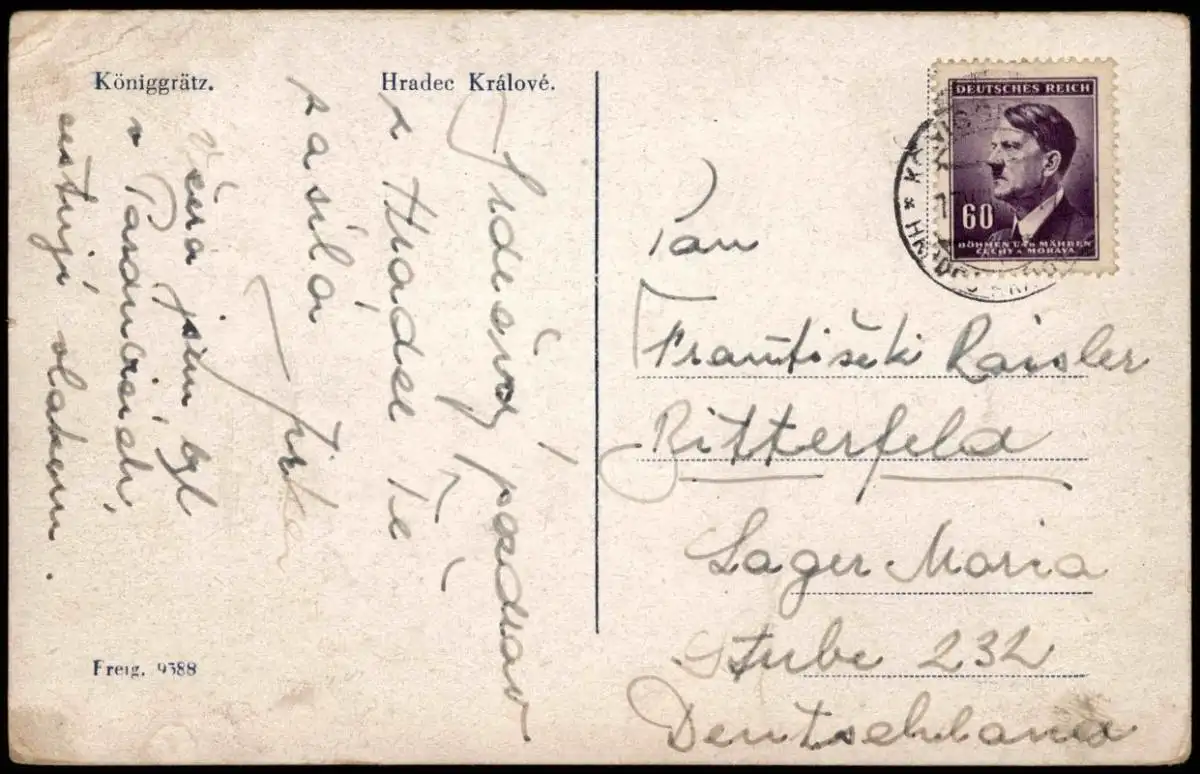 Königgrätz.
Hradec Králové.
Srdečný pozdrav
z Hradce Ti
zasílá
Jirka
Včera jsem byl
v Pardubicích,
cestuji vlakem.
Freig. 9388
DEUTSCHES REICH
60
BÖHMEN UND MÄHREN
ČECHY A MORAVA
Pan
Františeki Raisler
Bitterfeld
Lager Maria
Stube 232
Deutschland